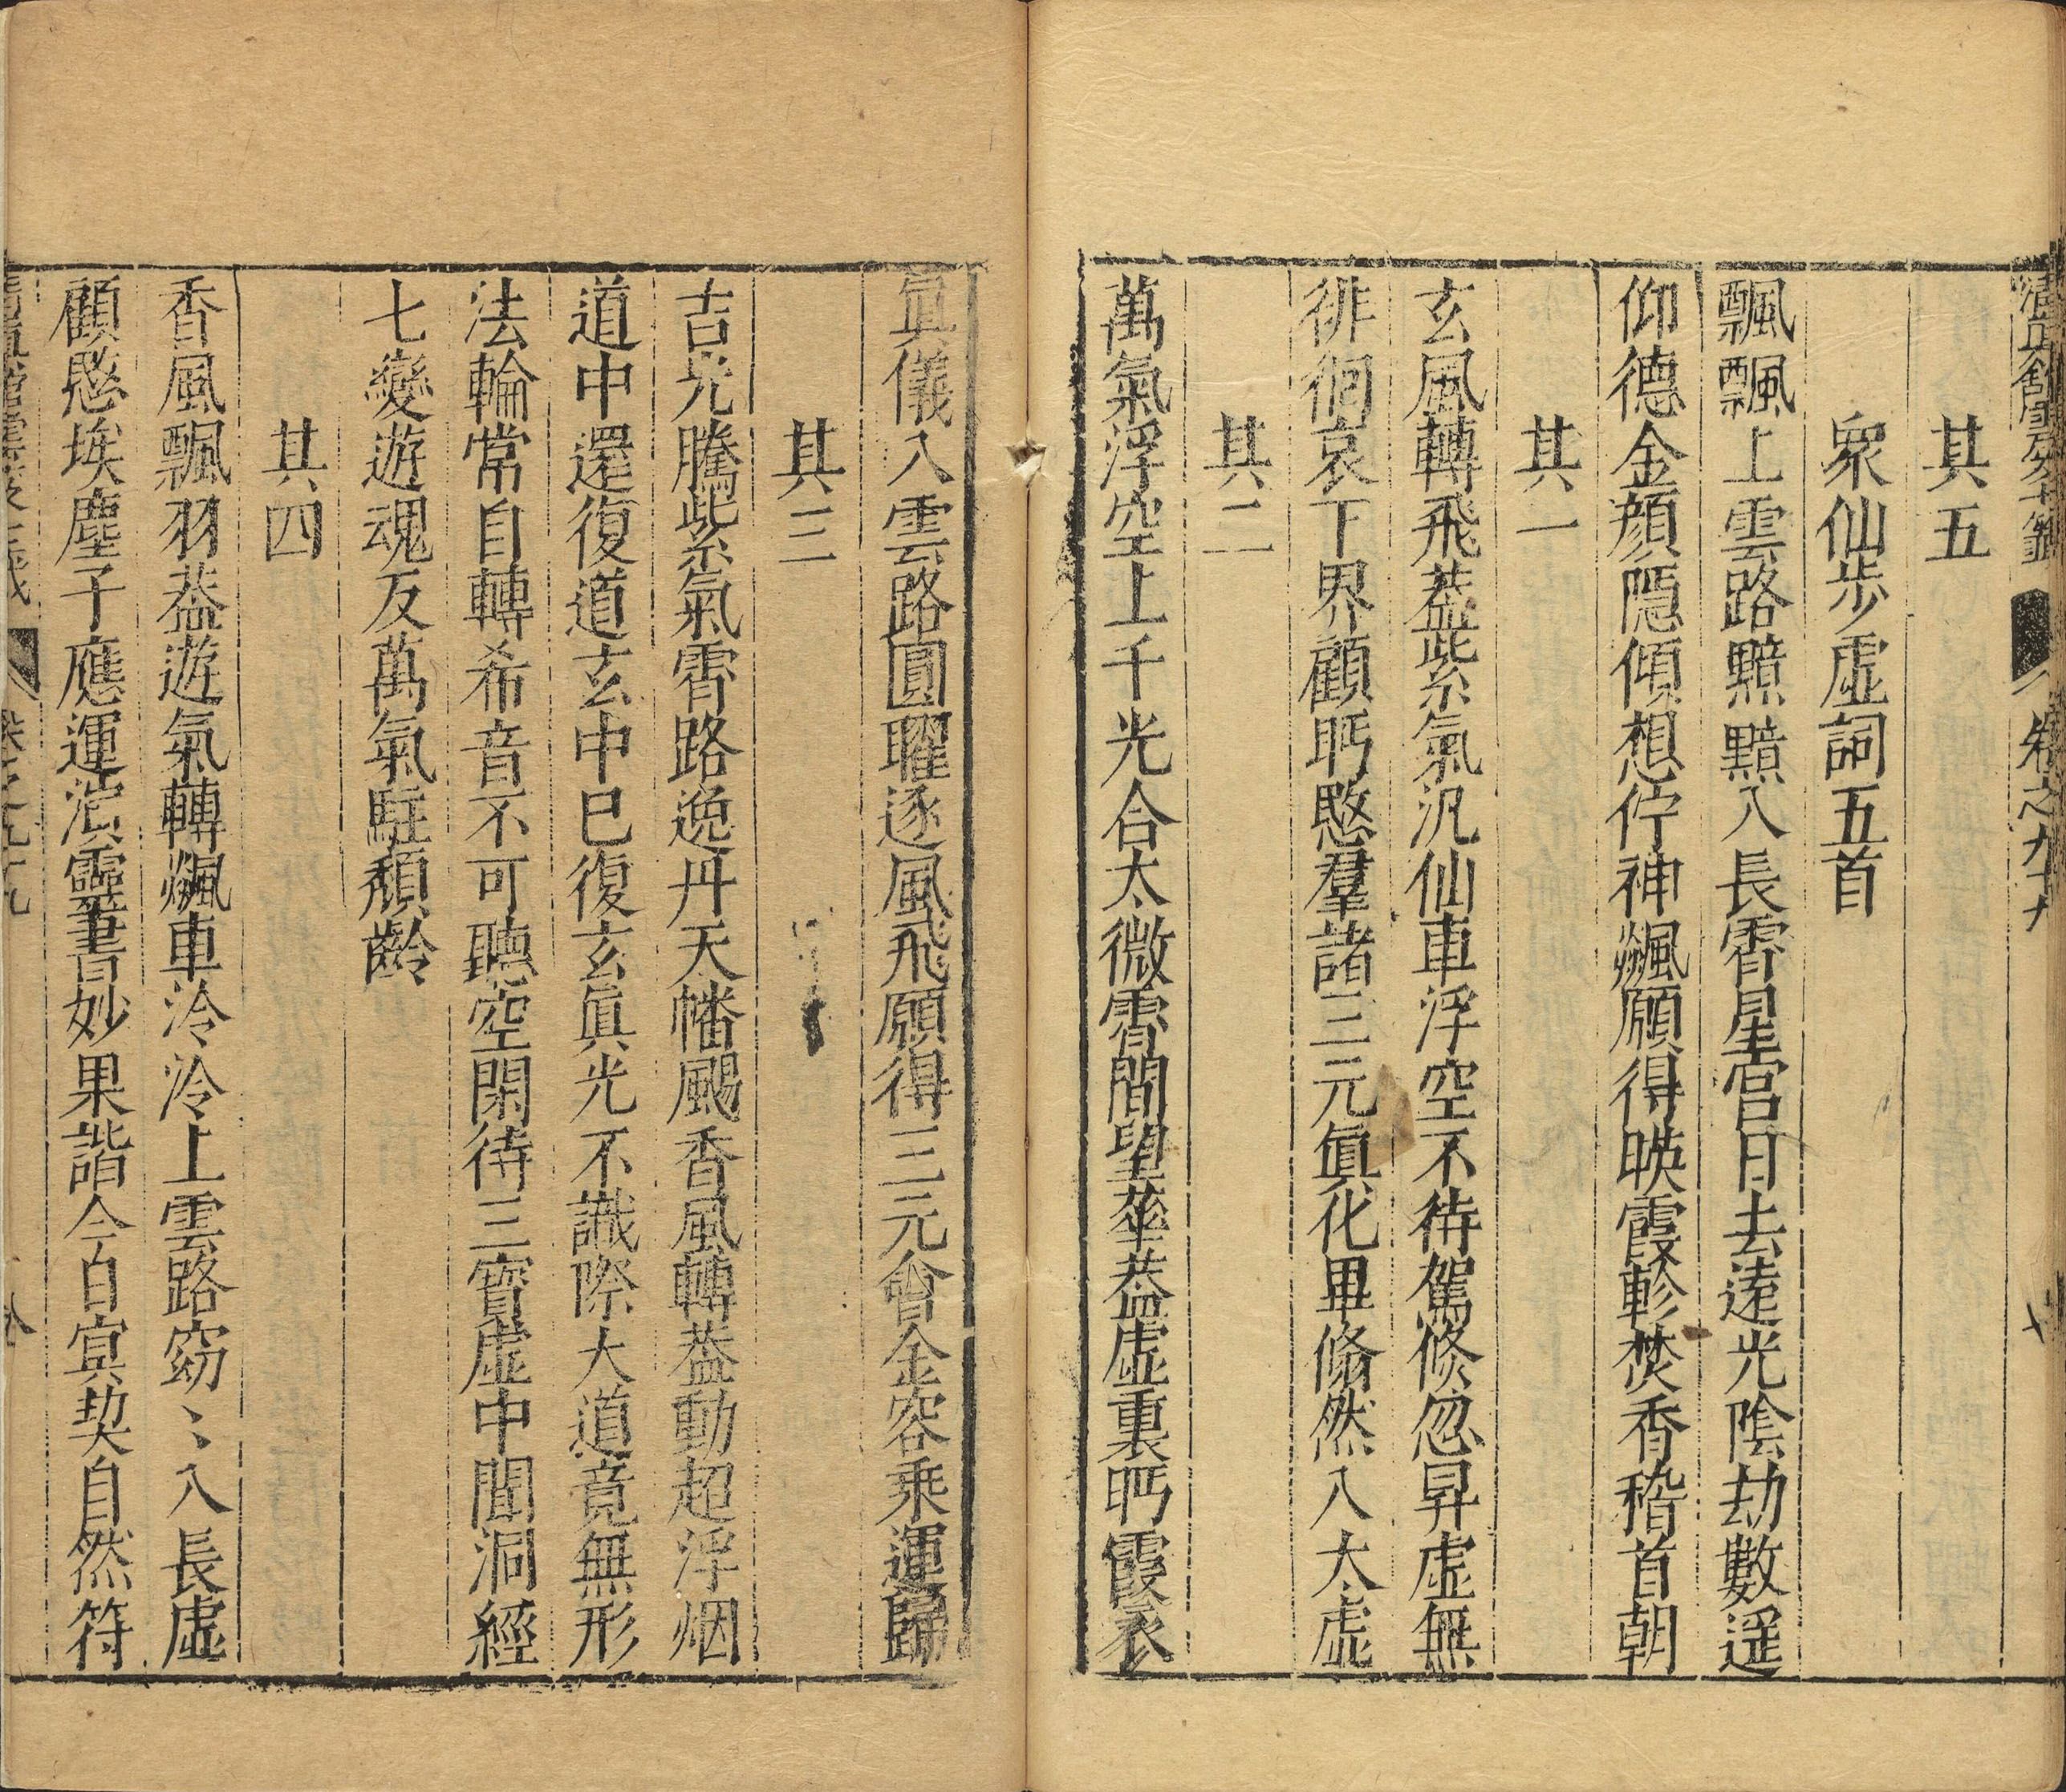 其五
衆仙步虛詞五首
飄飄上雲路黯黯入長霄星宮日去遠光陰劫數遥
仰德金顔隱傾想佇神飈願得暎霞軫焚香稽首朝
其一
玄風轉飛葢紫氣汎仙車浮空不待駕倐忽昇虛無
徘徊哀下界顧眄愍羣諸三元眞化畢翛然入太虛
其二
萬氣浮空上千光合太微霄間望華葢虛裏眄霞衣
眞儀入雲路圓曜逐風飛願得三元會金容乘運歸
其三
吉光騰紫氣霄路逸丹天幡颺香風轉葢動超浮烟
道中還復道玄中巳復玄眞光不識際大道竟無形
法輪常自轉希音不可聽空閑待三寳虛中聞洞經
七變遊魂反萬氣駐頽齡
其四
香風飄羽葢遊氣轉飈車泠泠上雲路窈〻入長虛
顧愍埃塵子應運演靈書妙果諧今百㝠契自然符
卷之九十九